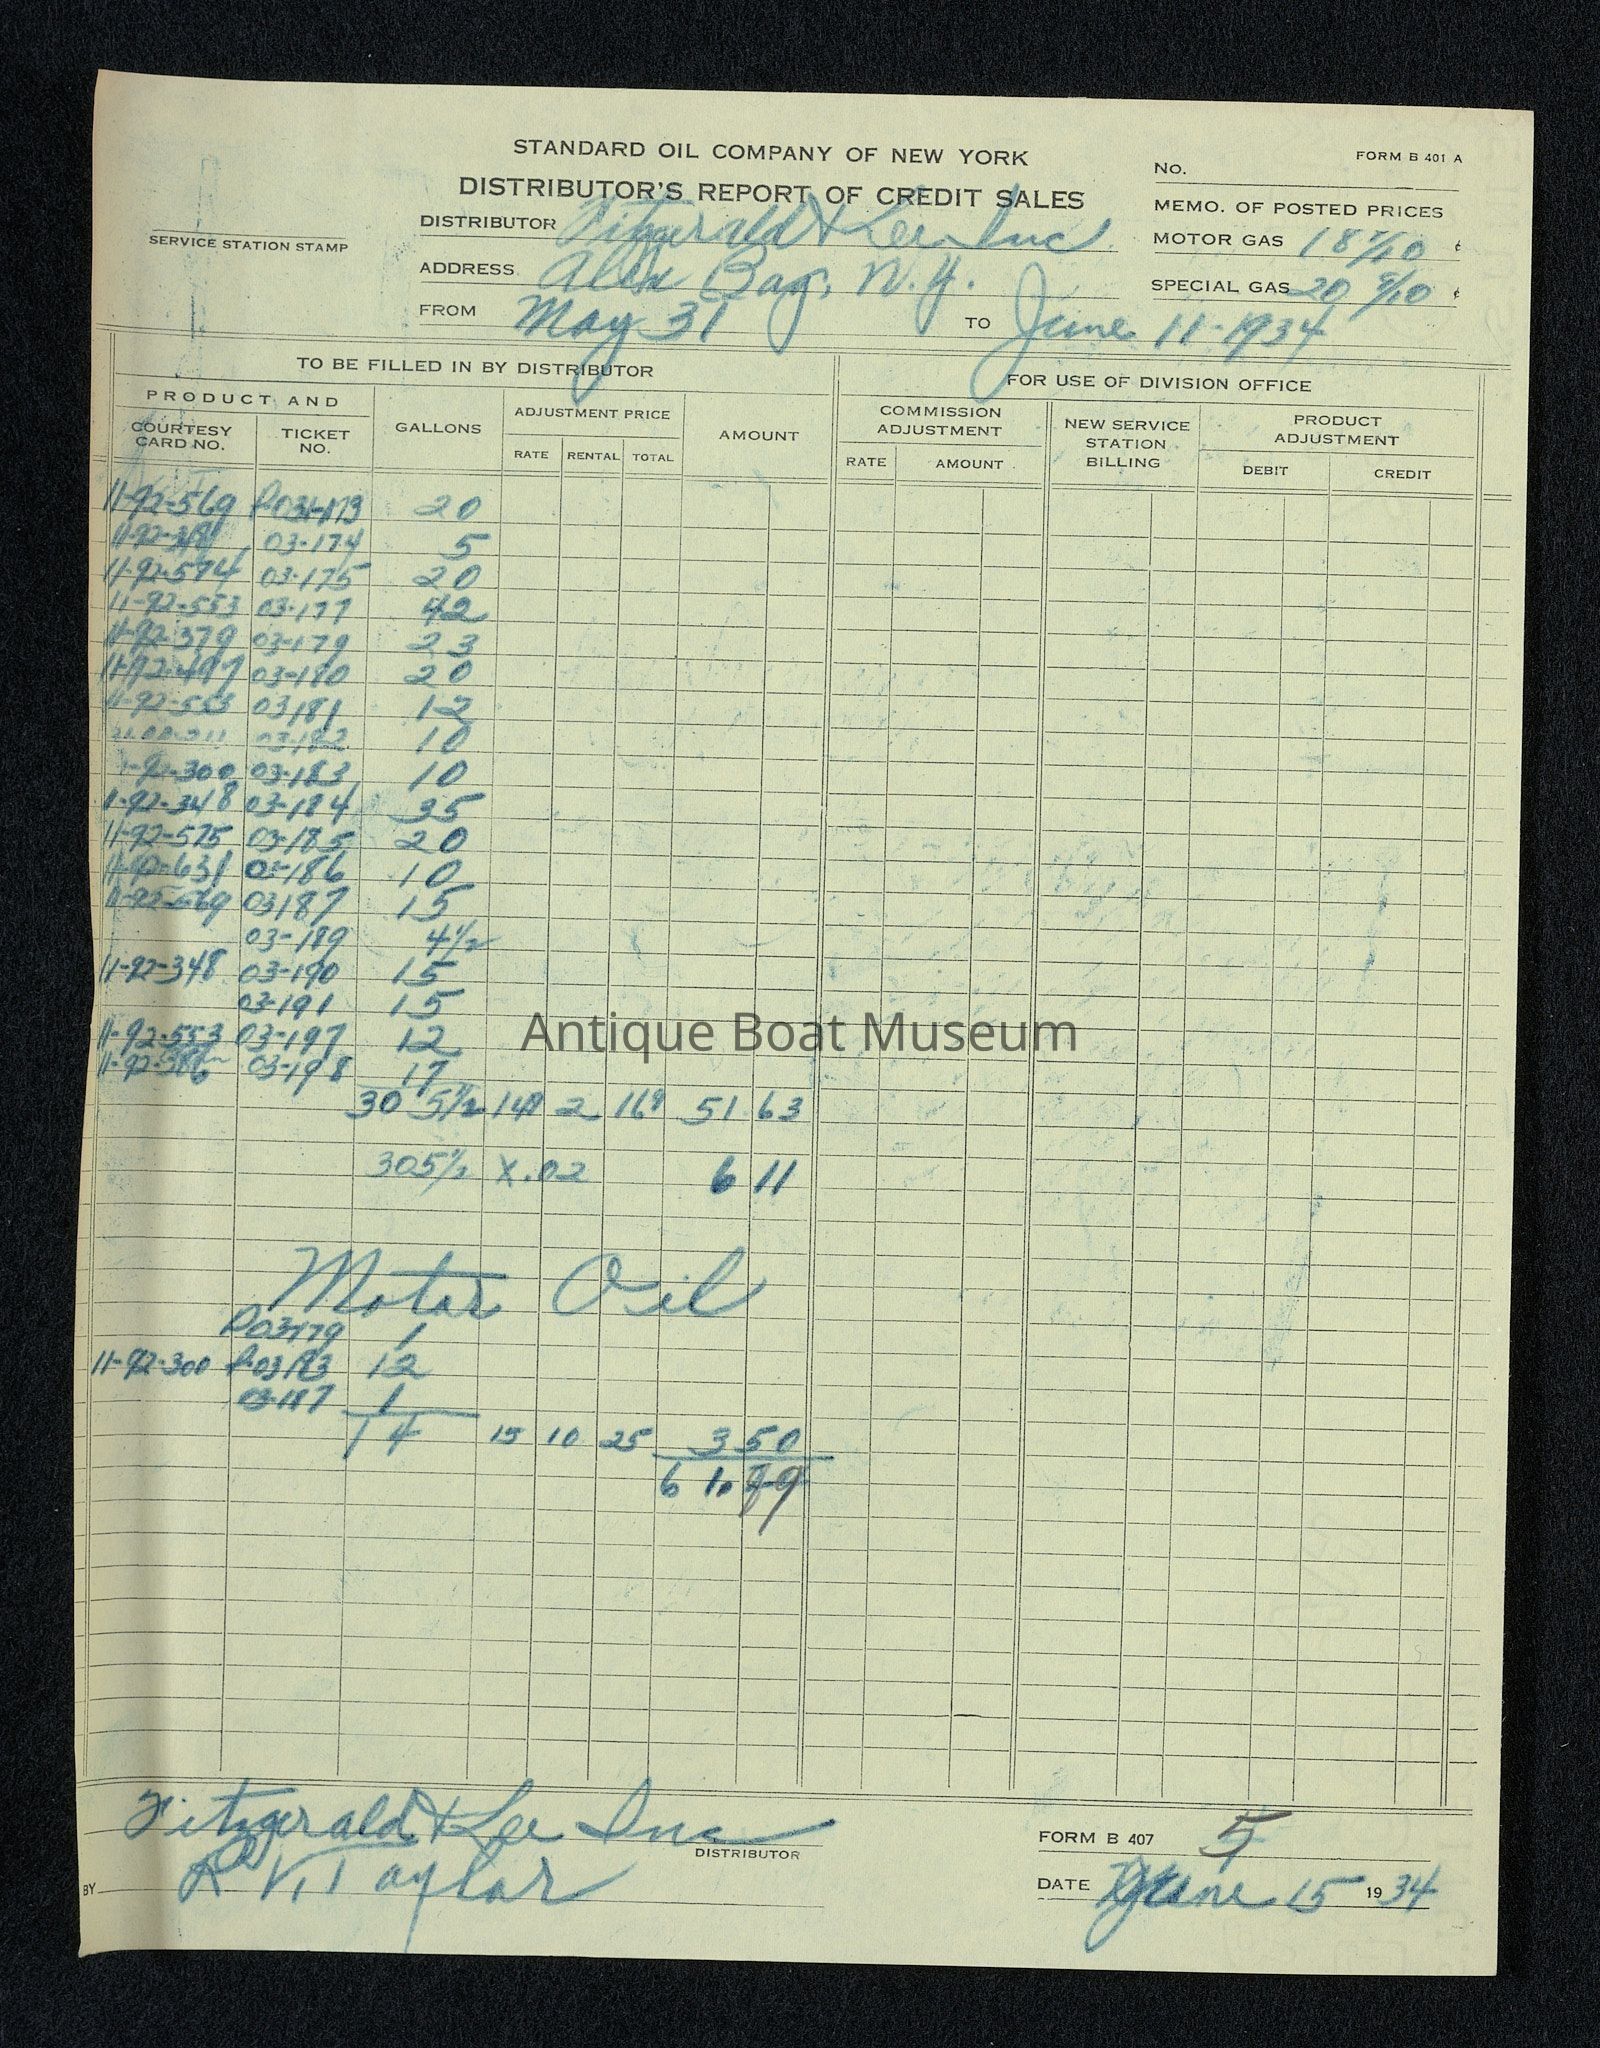 STANDARD OIL COMPANY OF NEW YORK
FORM B 401 A
DISTRIBUTOR'S REPORT OF CREDIT SALES
NO.
SERVICE STATION STAMP
DISTRIBUTOR Fitzgerald & Lee Inc
MEMO. OF POSTED PRICES
MOTOR GAS 18 /10 ¢
ADDRESS Alex Bay, N.Y.
SPECIAL GAS 20 /10 ¢
FROM May 31 TO June 11-1934
TO BE FILLED IN BY DISTRIBUTOR
FOR USE OF DIVISION OFFICE
PRODUCT AND
COURTESY CARD NO.
TICKET NO.
GALLONS
ADJUSTMENT PRICE
RATE RENTAL TOTAL
AMOUNT
COMMISSION ADJUSTMENT
RATE AMOUNT
NEW SERVICE STATION BILLING
PRODUCT ADJUSTMENT
DEBIT CREDIT
11-92-569 20
03-174 5
11-92-574 03-175 20
11-92-553 03-177 42
11-92-379 03-179 23
11-92-497 03-180 20
11-92-553 03181 12
03-182 10
-92-300 03-183 10
11-92-348 03-184 35
11-92-575 03-185 20
11-92-631 03-186 10
11-92-569 03187 15
03-189 4½
11-92-348 03-190 15
03-191 15
11-92-553 03-197 12
11-92-386 03-198 17
305½ 149 2 169 51 63
305½ X.02 6 11
Motor Oil
P03179 1
11-92-300 P-03183 12
03-187 1
14 15 10 25 3 50
61.
Antique Boat Museum
Fitzgerald & Lee Inc
DISTRIBUTOR
FORM B 407 5
BY R V. Taylor
DATE June 15 1934